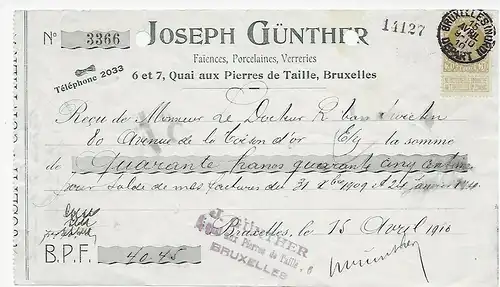 Nº 3366
JOSEPH GÜNTHER
14127
Faïences, Porcelaines, Verreries
Téléphone 2033
6 et 7, Quai aux Pierres de Taille, Bruxelles
BRUXELLES
15 AVRIL
1910
DEPART
Reçu de Monsieur Le Docteur
80 Avenue de la Toison d'or E/V la somme
de quarante francs quarante cinq centm
pour solde de mes factures des 31 Xbre 1909 et 24 janvier
J. GÜNTHER
Quai aux Pierres de Taille, 6
BRUXELLES
Bruxelles, le 15 Avril 1910
B.P.F. 40.45
JOSEPH GÜNTHER